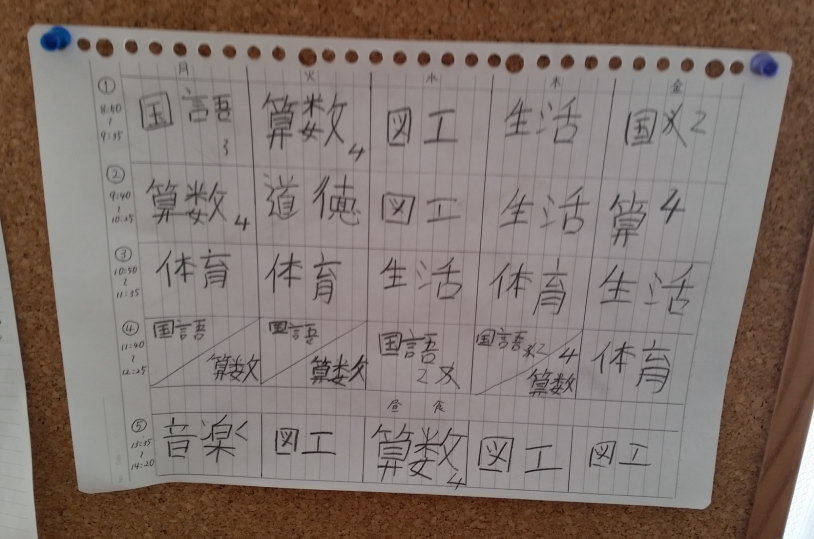 月 火 水 木 金
① 国語 算数 図工 生活 国 2
8:50 3 4
~
9:35
② 算数 道徳 図工 生活 算 4
9:40 4
~
10:25
③ 体育 体育 生活 体育 生活
10:50
~
11:35
④ 国語 国語 国語 国語 2 体育
11:40 算数 算数 2 4
~ 算数
12:25
昼食
⑤ 音楽 図工 算数 図工 図工
13:35 4
~
14:20